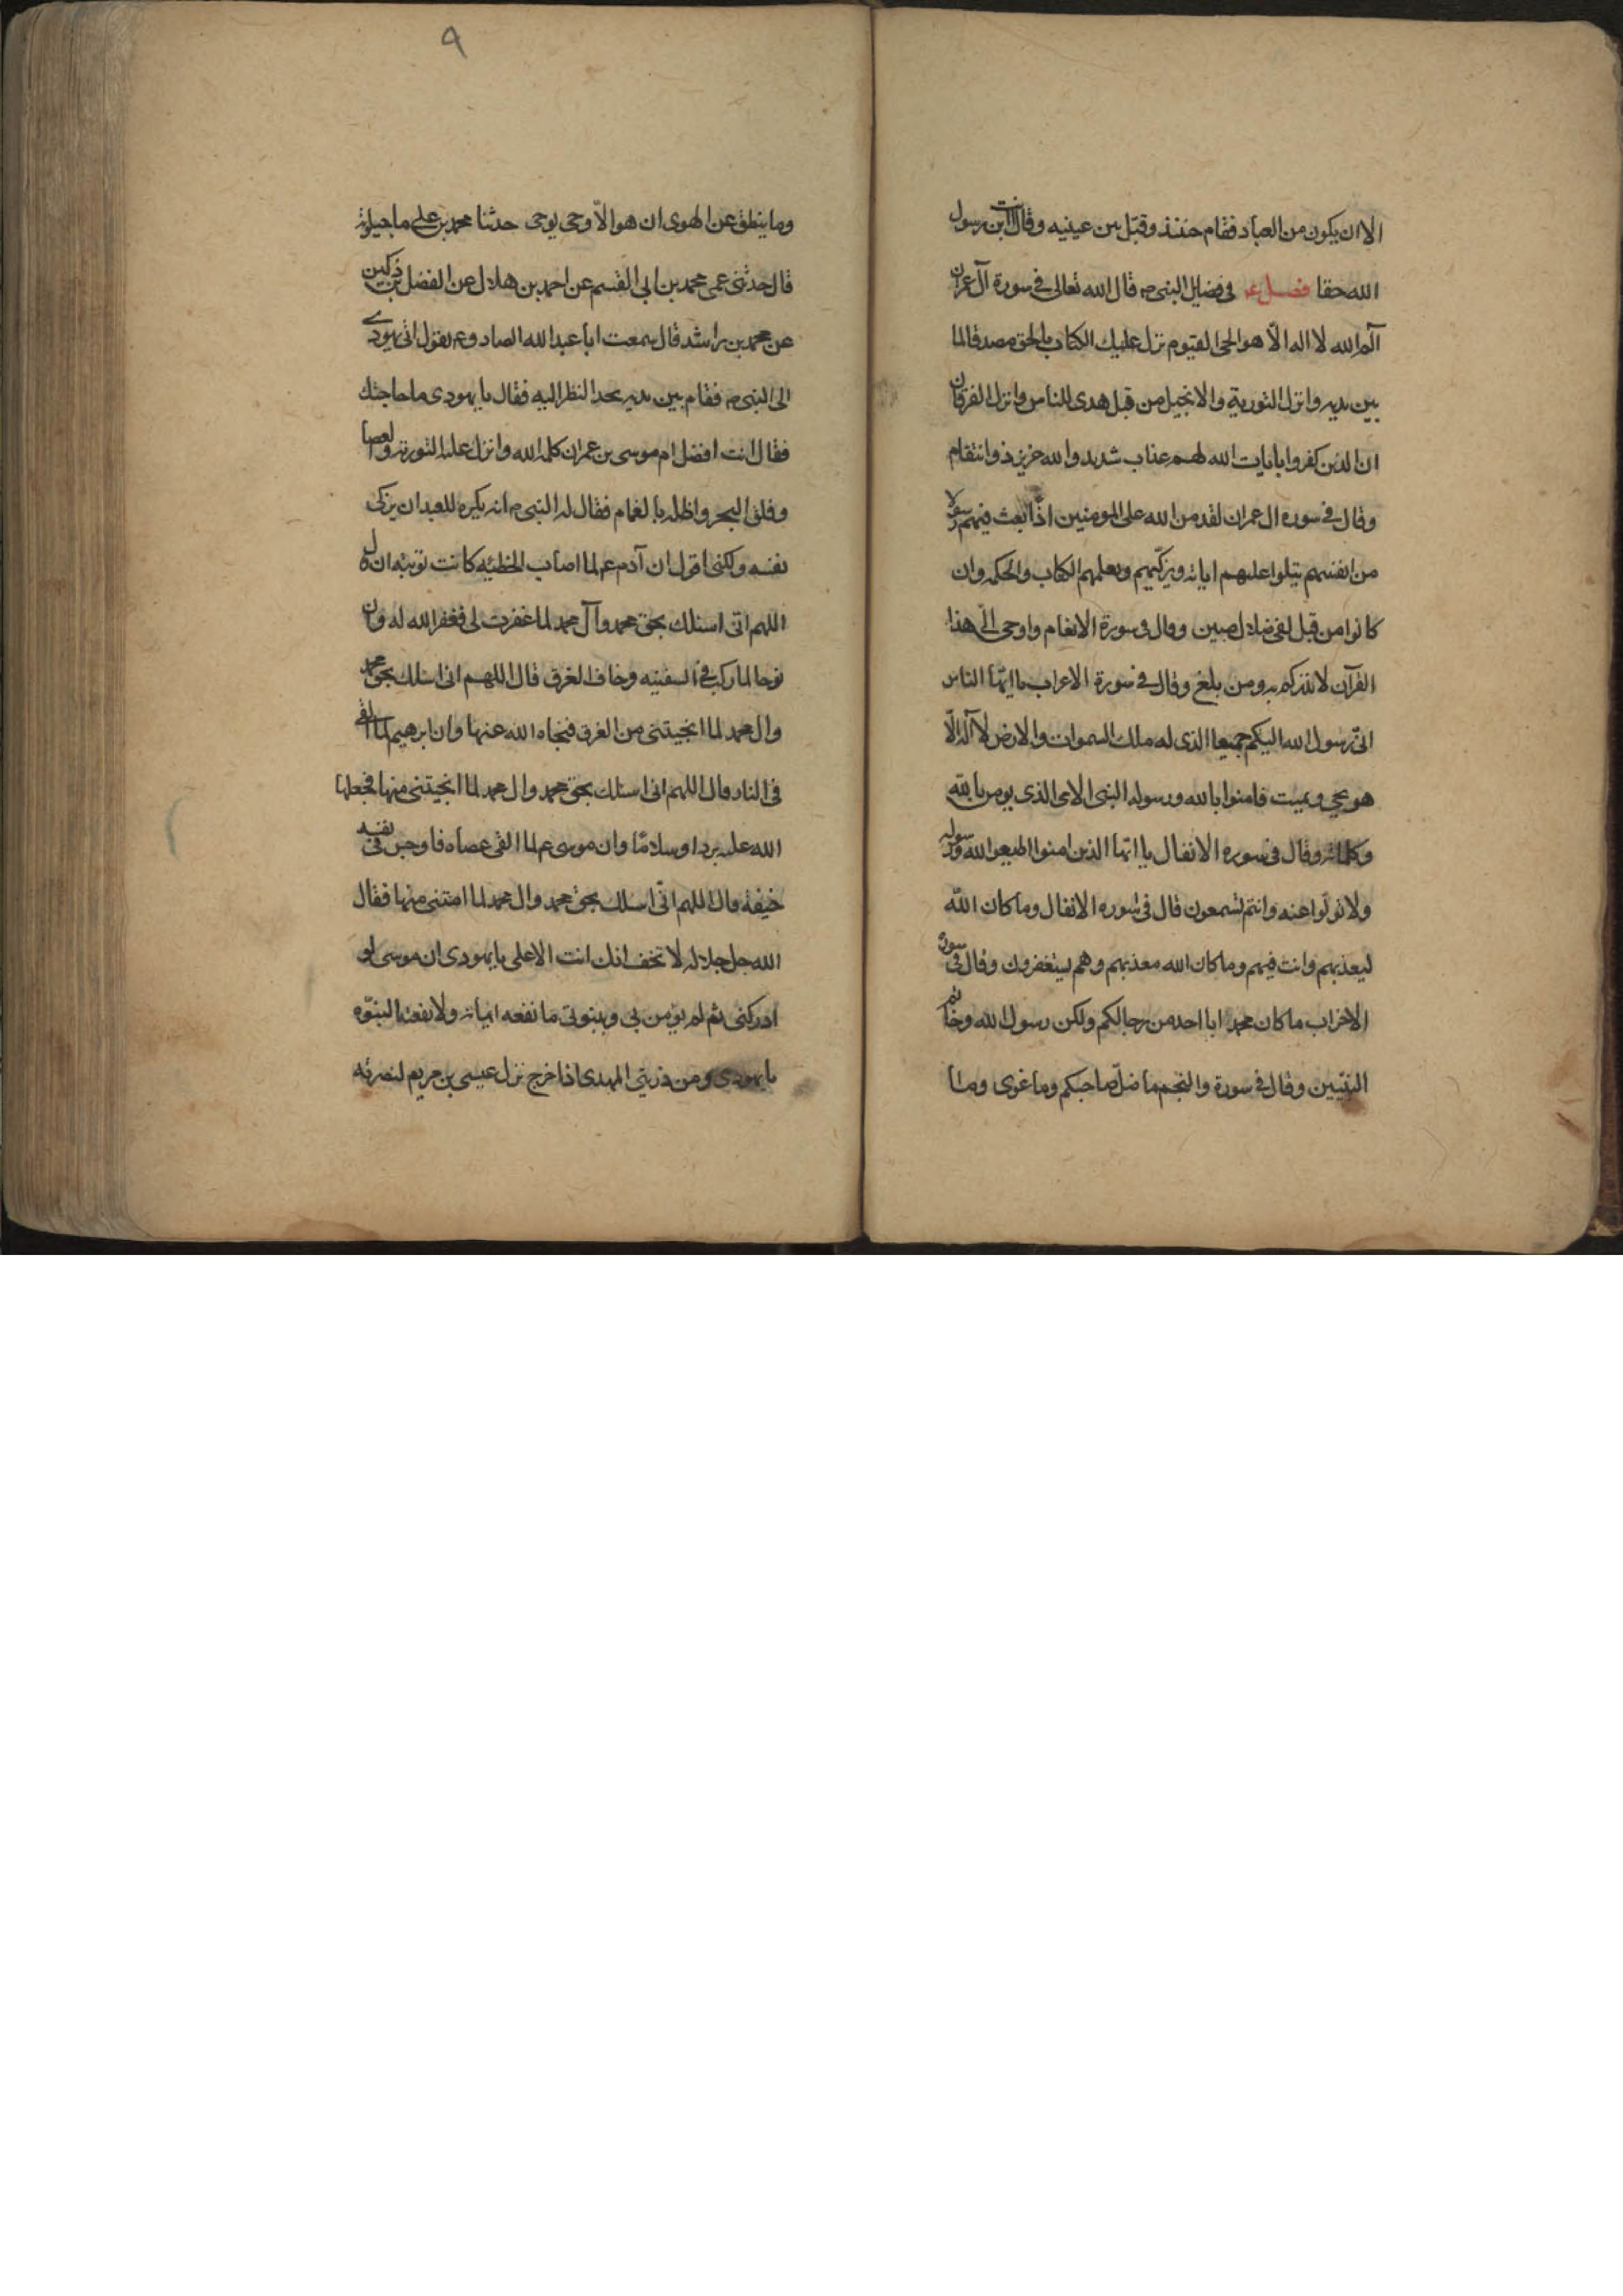 الا ان يكون من العباد فقام حنئذ وقبّل بين عينيه وقال انت ابن رسول
الله حقا فصل في فضايل النبي ص قال الله تعالى في سورة آل عمران
آلم الله لا اله الّا هو الحي القيوم نزل عليك الكتاب بالحق مصدقا لما
بين يديه وانزل التورية والانجيل من قبل هدى للناس وانزل الفرقان
ان الذين كفروا بايات الله لهم عذاب شديد والله عزيز ذو انتقام
وقال في سوره ال عمران لقد من الله على المومنين اذ بعث فيهم رسولا
من انفسهم يتلوا عليهم اياته ويزكّيهم ويعلمهم الكتاب والحكمه وان
كانوا من قبل لفي ضلال مبين وقال في سورة الانعام واوحي الّي هذا
القرآن لانذركم به ومن بلغ وقال في سورة الاعراب يا ايّها الناس
انّي رسول الله اليكم جميعا الذي له ملك السموات والارض لا آله الّا
هو يحي ويميت فامنوا بالله ورسوله النبي الامي الذي يومن بالله
وكلماته وقال في سوره الانفال يا ايّها الذين امنوا اطيعوا الله ورسوله
ولا تولّوا عنه وانتم تسمعون قال في سوره الانفال وما كان الله
ليعذبهم وانت فيهم وما كان الله معذبهم وهم يستغفرون وقال في سورة
الاحزاب ما كان محمد ابا احد من رجالكم ولكن رسول الله وخاتم
النبيّين وقال في سورة والنجم ما ضلّ صاحبكم وما غوى وما
٩
وما ينطق عن الهوى ان هو الاّ وحي يوحى حدثنا محمد بن علي ماجيلويه
قال حدثني عمي محمد بن ابي القسم عن احمد بن هلال عن الفضل بن دكين
عن محمد بن راشد قال سمعت ابا عبد الله الصادق ع يقول اتى يهودي
الى النبي ص فقام بين يديه يحد النظر اليه فقال يا يهودي ما حاجتك
فقال انت افضل ام موسى بن عمران كلمه الله وانزل عليه التورية والعصا
وفلق البحر واظله بالغمام فقال له النبي ص انه يكره للعبد ان يزكى
نفسه ولكني اقول ان آدم ع لما اصاب الخطيئه كانت توبته ان قال
اللهم انّي اسئلك بحق محمد وآل محمد لما غفرت لي فغفر الله له وان
نوحا لما ركب في السفينه وخاف الغرق قال اللهم اني اسئلك بحق محمد
وال محمد لما انجيتني من الغرق فنجاه الله عنها وان ابرهيم لما القي
في النار قال اللهم اني اسئلك بحق محمد وال محمد لما انجيتني منها فجعلها
الله عليه بردا وسلامًا وان موسى ع لما القى عصاه فاوجس في نفسه
خيفة قال اللهم انّي اسئلك بحق محمد وال محمد لما امنتني منها فقال
الله جل جلاله لا تخف انك انت الاعلى يا يهودي ان موسى لو
ادركني ثم لم يؤمن بي وبنبوتي ما نفعه ايمانه ولا نفعته النبوّه
يا يهودي ومن ذريتي المهدي اذا خرج نزل عيسى بن مريم لنصرته